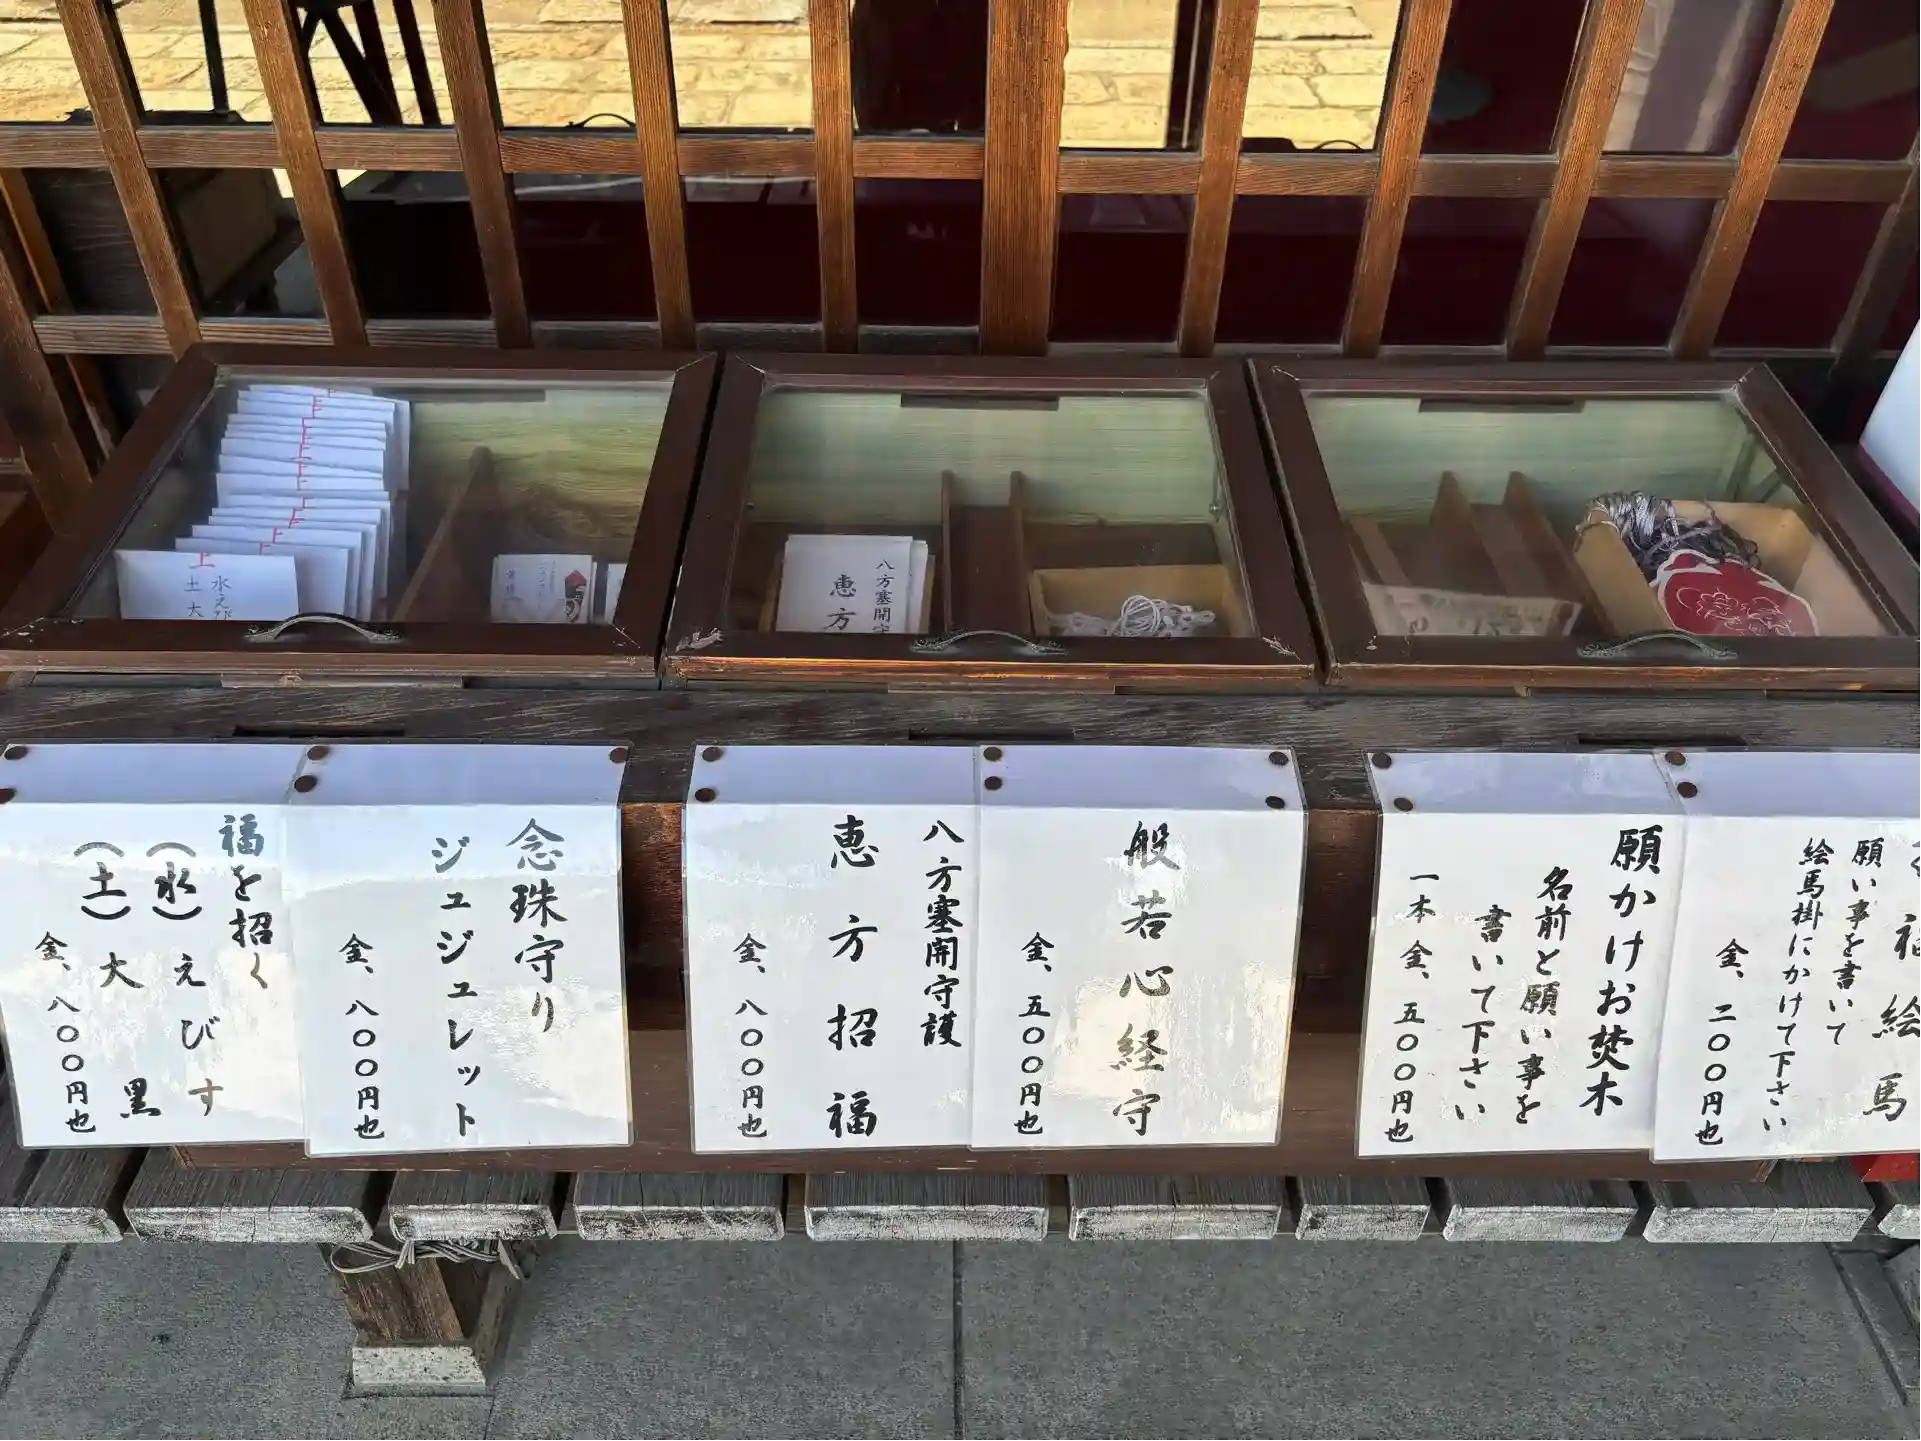 上
上
上
上
上
上
上
水えび
土大
八方塞開守
恵方
福を招く
（水）えびす
（土）大黒
金、八〇〇円也
念珠守り
ジュジュレット
金、八〇〇円也
八方塞開守護
恵方招福
金、八〇〇円也
般若心経守
金、五〇〇円也
願かけお焚木
名前と願い事を
書いて下さい
一本 金、五〇〇円也
福絵馬
願い事を書いて
絵馬掛にかけて下さい
金、二〇〇円也